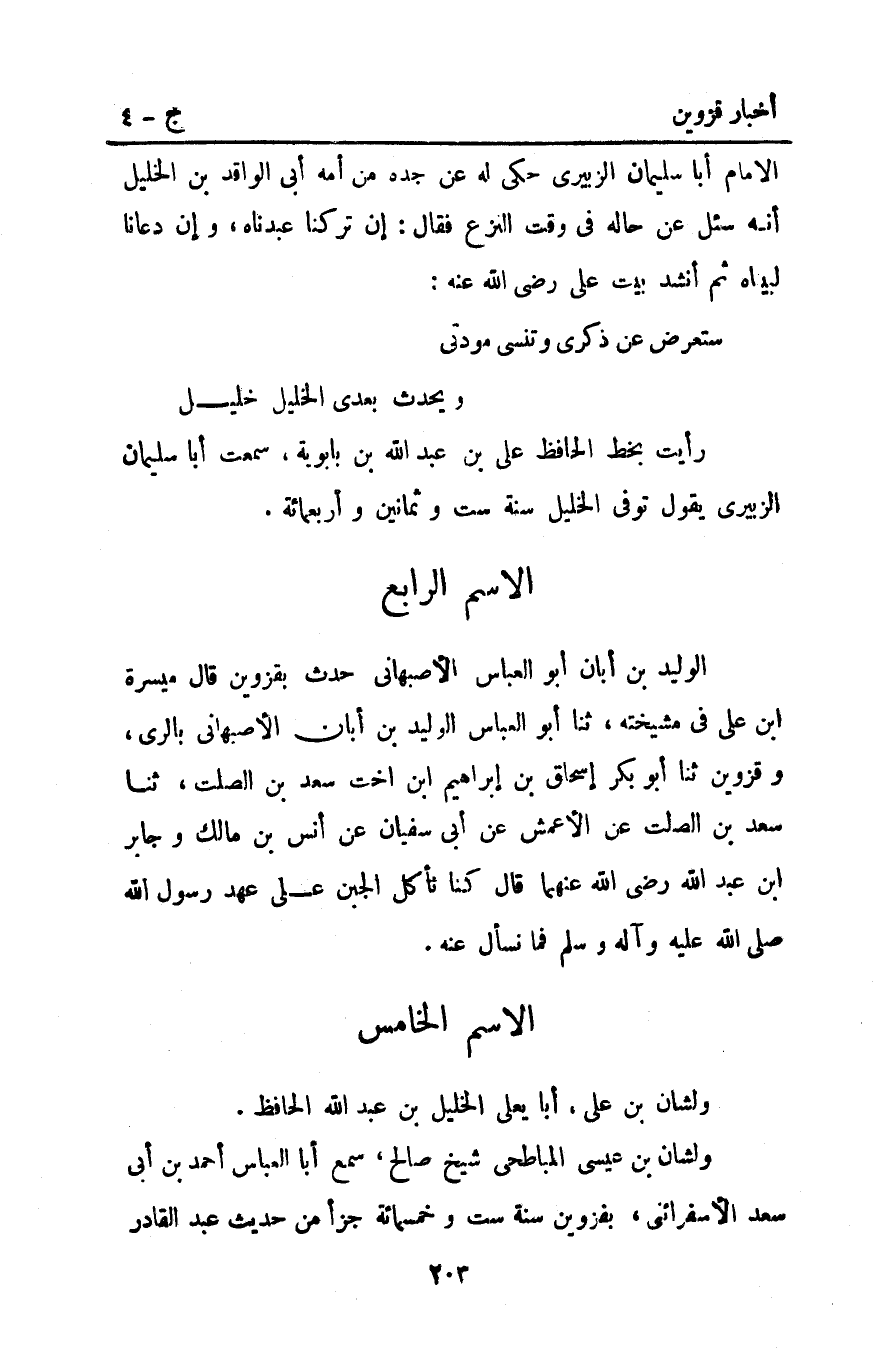 أخبار قزوين ج - ٤
الامام أبا سليمان الزبيرى حكى له عن جده من أمه أبى الواقد بن الخليل
أنه سئل عن حاله فى وقت النزع فقال : إن تركنا عبدناه ، و إن دعانا
لبيناه ثم أنشد بيت على رضى الله عنه :
ستعرض عن ذكرى وتنسى مودتى
و يحدث بعدى الخليل خليل
رأيت بخط الحافظ على بن عبد الله بن بابوبة ، سمعت أبا سليمان
الزبيرى يقول توفى الخليل سنة ست و ثمانين و أربعمائة .
الاسم الرابع
الوليد بن أبان أبو العباس الأصبهانى حدث بقزوين قال ميسرة
ابن على فى مشيخته ، ثنا أبو العباس الوليد بن أبان الأصبهانى بالرى ،
و قزوين ثنا أبو بكر إسحاق بن إبراهيم ابن اخت سعد بن الصلت ، ثنا
سعد بن الصلت عن الأعمش عن أبى سفيان عن أنس بن مالك و جابر
ابن عبد الله رضى الله عنهما قال كنا نأكل الجبن على عهد رسول الله
صلى الله عليه وآله و سلم فما نسأل عنه .
الاسم الخامس
ولشان بن على ، أبا يعلى الخليل بن عبد الله الحافظ .
ولشان بن عيسى المباطحى شيخ صالح ، سمع أبا العباس أحمد بن أبى
سعد الأسفرائنى ، بقزوين سنة ست و خمسمائة جزأ من حديث عبد القادر
٢٠٣